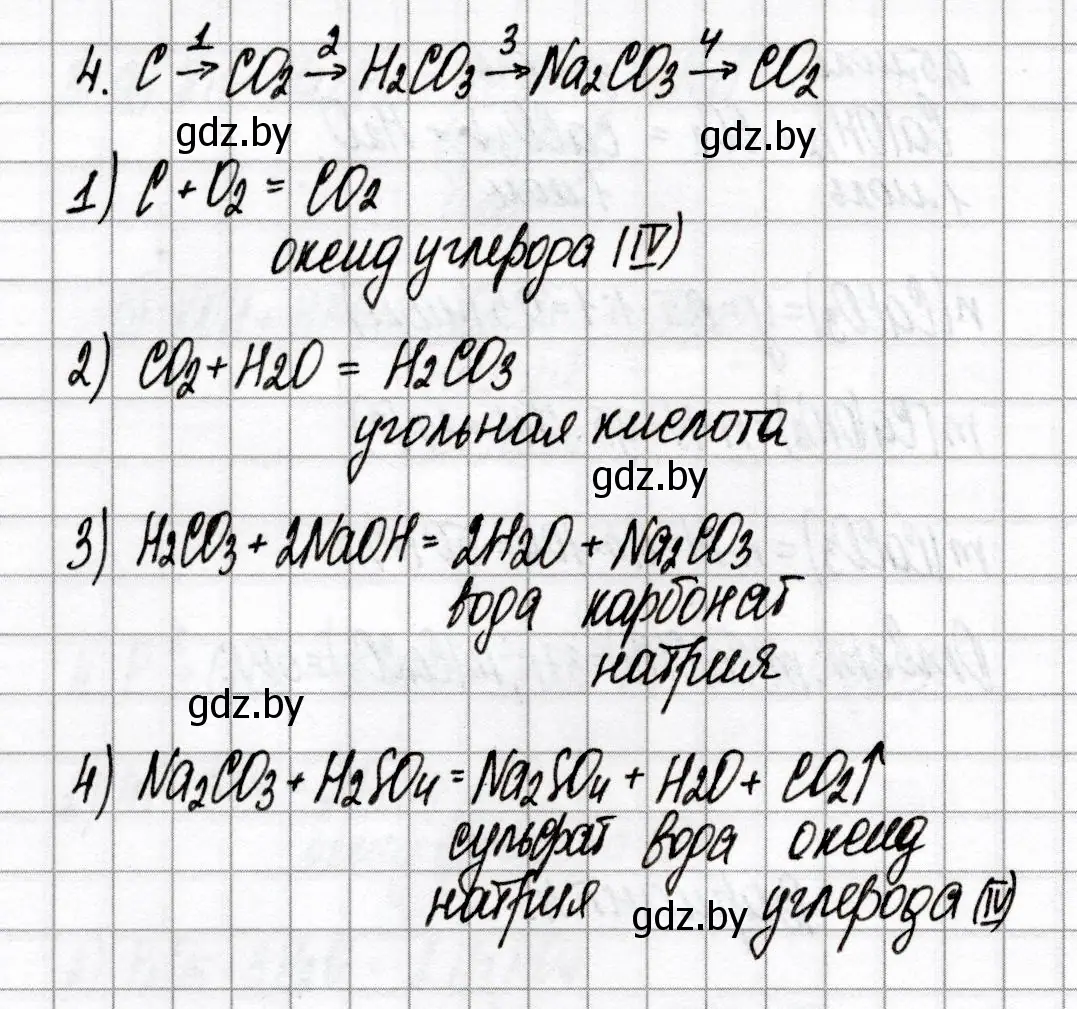 4. C 1→ CO2 2→ H2CO3 3→ Na2CO3 4→ CO2
gdz.by gdz.by
1) C + O2 = CO2
оксид углерода (IV)
2) CO2 + H2O = H2CO3
угольная кислота
gdz.by
3) H2CO3 + 2NaOH = 2H2O + Na2CO3
вода карбонат
натрия
gdz.by
4) Na2CO3 + H2SO4 = Na2SO4 + H2O + CO2↑
сульфат вода оксид
натрия gdz.by углерода (IV)